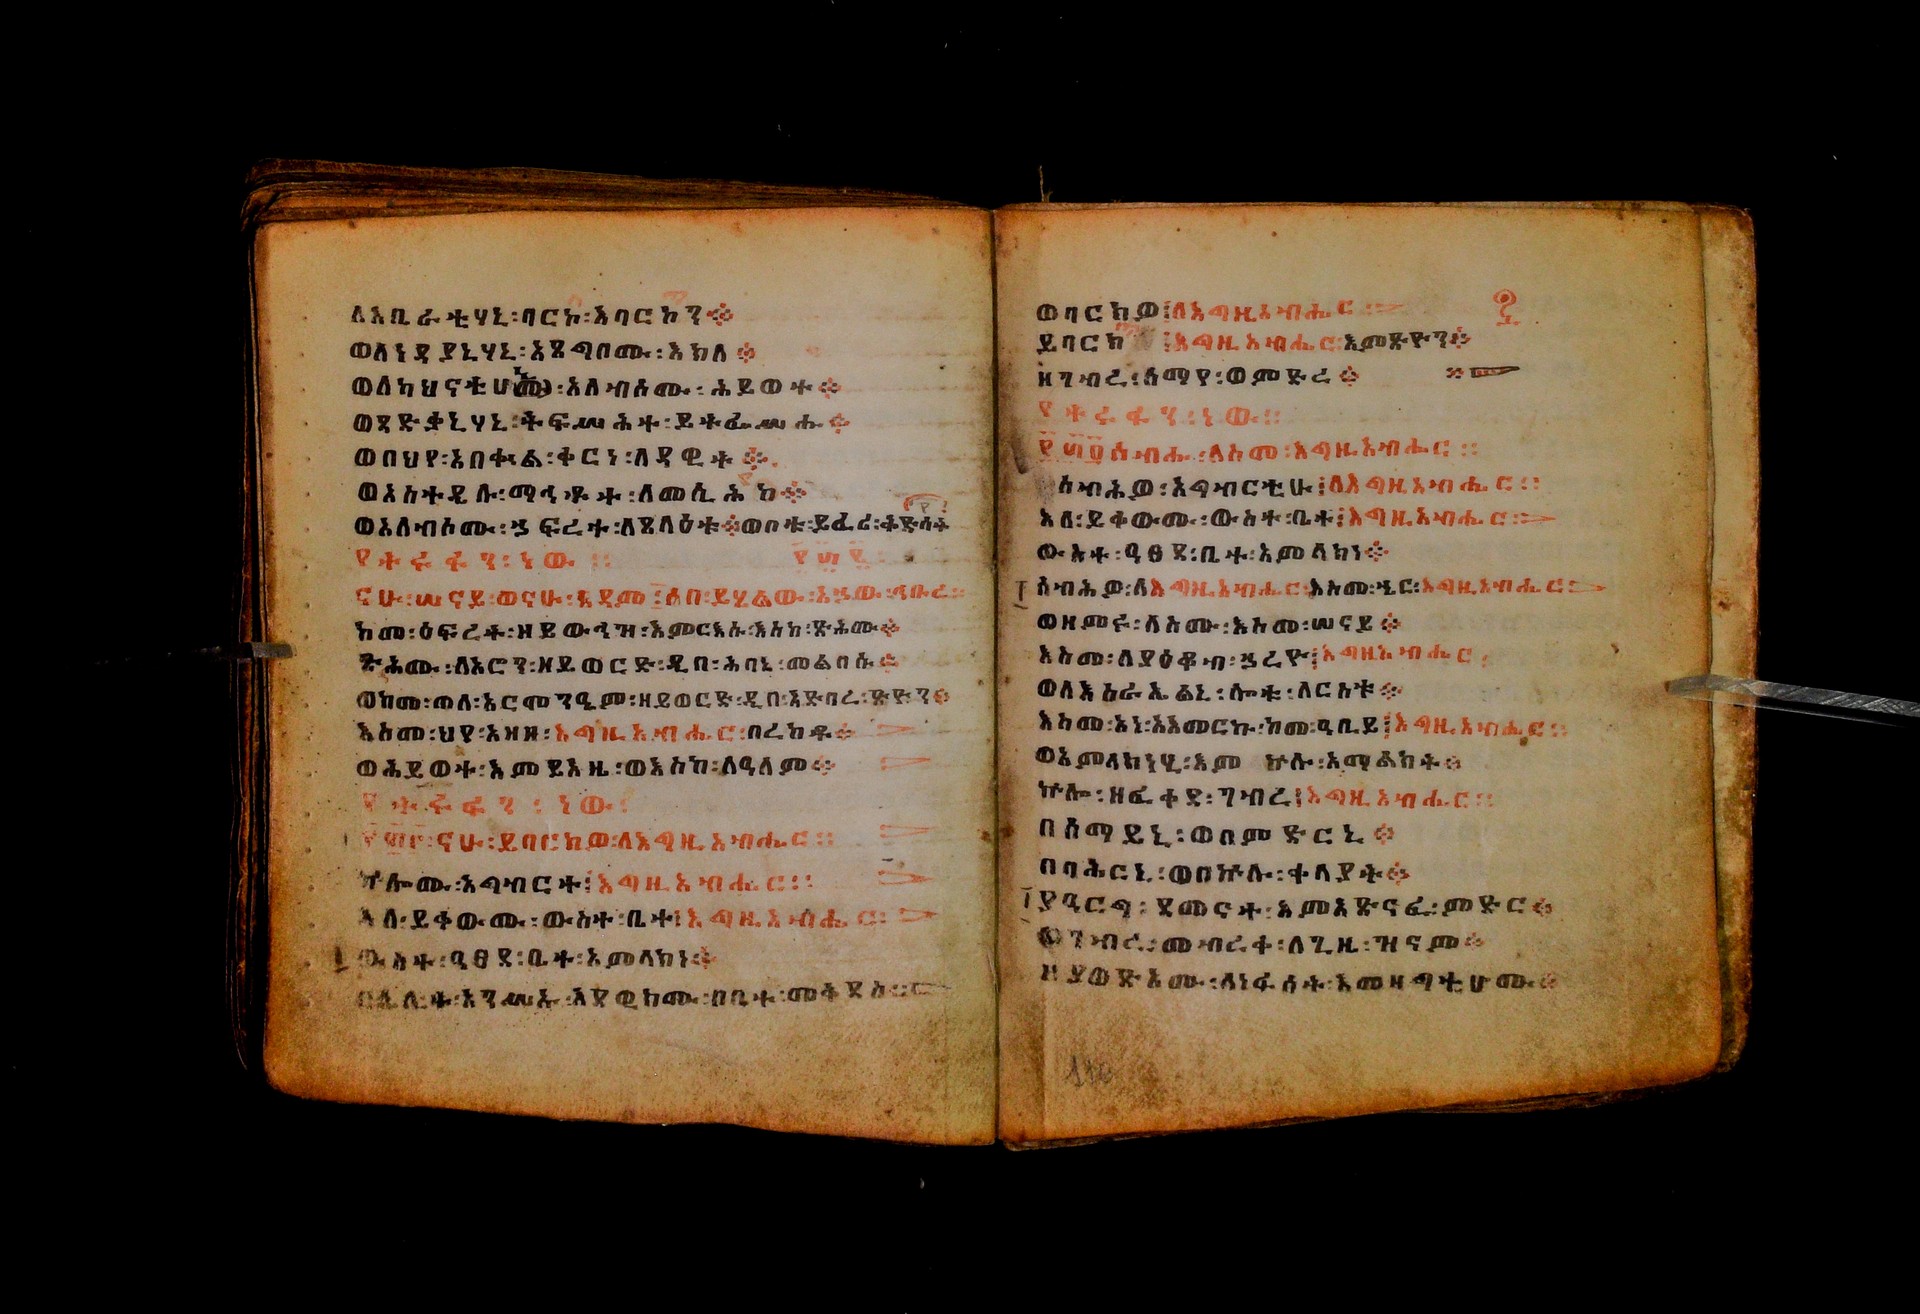 ለእቤራቲሃኒ፡ባርኮ፡እባርኮን።
ወለነዳያኒሃኒ፡እጼግቦሙ፡እክለ።
ወለካህናቲሃኒ፡አለብሶሙ፡ሕይወተ።
ወጻድቃኒሃኒ፡ትፍሥሕተ፡ይትፌሥሑ።
ወበህየ፡አበቍል፡ቀርነ፡ለዳዊት።
ወአስተዴሉ፡ማኅቶተ፡ለመሲሕከ።
ወአለብሶሙ፡ኃፍረተ፡ለጸላዕቱ።ወቦቱ፡ይፈሪ፡ቅድሳት
የተሩፋን፡ነው። ፻፴፪
ናሁ፡ሠናይ፡ወናሁ፡አዳም፡ሶበ፡ይሄልው፡አኃው፡ኅቡረ።
ከመ፡ዕፍረት፡ዘይውኅዝ፡እምርእሱ፡እስከ፡ጽሕሙ።
ጽሕሙ፡ለአሮን፡ዘይወርድ፡ዲበ፡ሕባኔ፡መልበሱ።
ወከመ፡ጠለ፡አርሞንዔም፡ዘይወርድ፡ዲበ፡አድባረ፡ጽዮን።
እስመ፡ህየ፡አዘዘ፡እግዚአብሔር፡በረከቶ።
ወሕይወተ፡እምይእዜ፡ወእስከ፡ለዓለም።
የተሩፋን፡ነው፡
፻፴፫ናሁ፡ይባርክዎ፡ለእግዚአብሔር።
ኵሎሙ፡አግብርተ፡እግዚአብሔር።
እለ፡ይቀውሙ፡ውስተ፡ቤተ፡እግዚአብሔር፡
ውስተ፡ዓፀደ፡ቤተ፡አምላክነ።
በሌሊት፡አንሥኡ፡እደዊክሙ፡በቤተ፡መቅደስ።
ወባርክዎ፡ለእግዚአብሔር፡
ይባርክ፡እግዚአብሔር፡እምጽዮን።
ዘገብረ፡ሰማየ፡ወምድረ።
የተሩፋን፡ነው።
፻፴፬ሰብሑ፡ለስመ፡እግዚአብሔር።
ሰብሕዎ፡አግብርቲሁ፡ለእግዚአብሔር።
እለ፡ይቀውሙ፡ውስተ፡ቤተ፡እግዚአብሔር፡
ውስተ፡ዓፀደ፡ቤተ፡አምላክነ።
ሰብሕዎ፡ለእግዚአብሔር፡እስመ፡ኄር፡እግዚአብሔር፡
ወዘምሩ፡ለስሙ፡እስመ፡ሠናይ።
እስመ፡ለያዕቆብ፡ኃረዮ፡እግዚአብሔር፡
ወለእስራኤልኒ፡ሎቱ፡ለርስቱ።
እስመ፡አነ፡አእመርኩ፡ከመ፡ዓቢይ፡እግዚአብሔር።
ወአምላክነሂ፡እም ኵሉ፡አማልክት።
ኵሎ፡ዘፈቀደ፡ገብረ፡እግዚአብሔር።
በሰማይኒ፡ወበምድርኒ።
በባሕርኒ፡ወበኵሉ፡ቀላያት።
ያዓርግ፡ደመናተ፡እምአጽናፈ፡ምድር።
ወገብረ፡መብረቀ፡ለጊዜ፡ዝናም።
ዘያወጽኦሙ፡ለነፋሳት፡እመዛግብቲሆሙ።